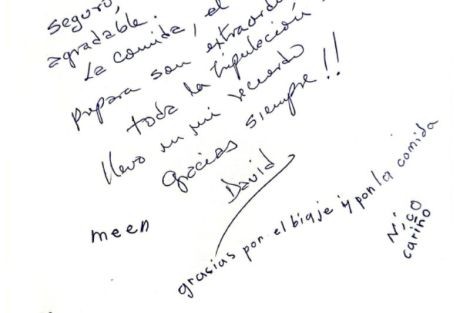 seguro,
agradable.
La comida, el
prepara son extraord
toda la tripulación
llevo en mi recuerdo
gracias siempre!!
David
meen
grasias por el biaje y pon la comida
Nico
cariño